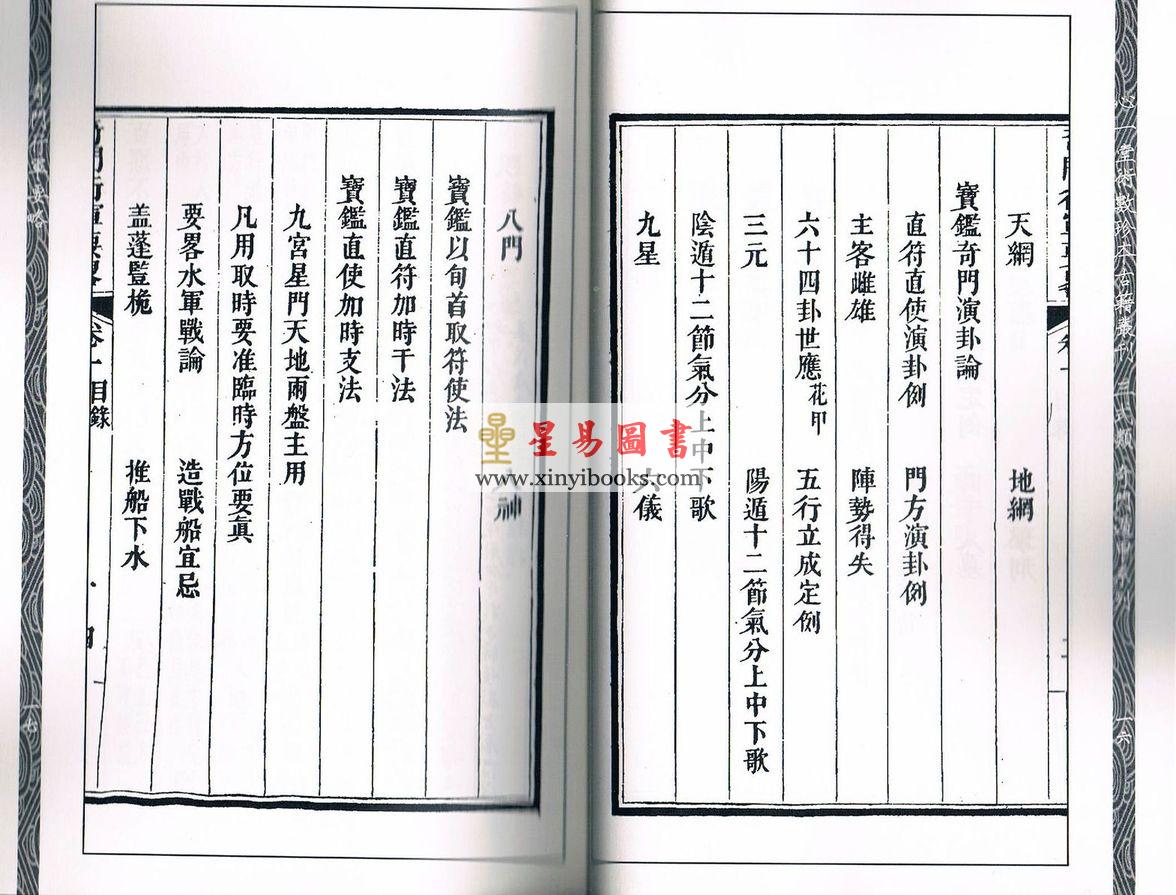 天網 地網
寶鑑奇門演卦論
直符直使演卦例 門方演卦例
主客雌雄 陣勢得失
六十四卦世應花甲 五行立成定例
三元 陽遁十二節氣分上中下歌
陰遁十二節氣分上中下歌
九星 六儀
一六
心一堂術數珍本古籍叢刊 三式類 奇門遁甲系列
八門 八神
寶鑑以旬首取符使法
寶鑑直符加時干法
寶鑑直使加時支法
九宮星門天地兩盤主用
凡用取時要准臨時方位要眞
要畧水軍戰論 造戰船宜忌
盖蓬豎桅 推船下水
奇門行軍要畧 卷一目錄
四
奇門行軍要略
一七
星易圖書
www.xinyibooks.com